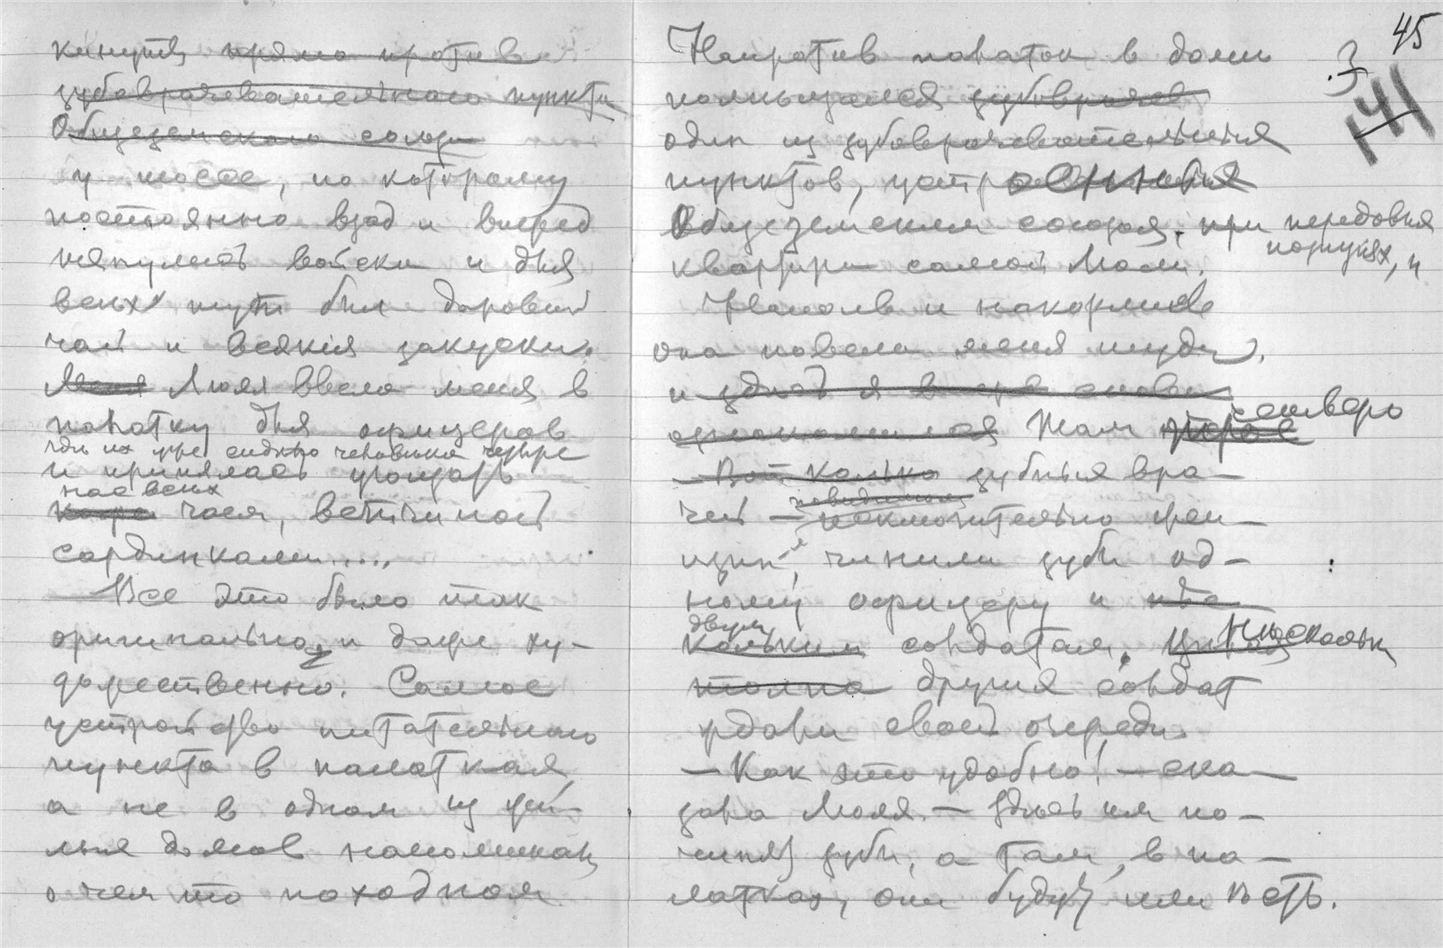 кинуты прямо против
зубоврачевательного пункта
Общеземского союза
у шоссе, по которому
постоянно взад и вперед
тянулись войска и для
всех тут был даровой
чай и всякия закуски.
Меня Люля ввела меня в
палатку для офицеров
где их уже сидело человека четыре
и принялась угощать
нас всех
чаем, ветчиной
сардинками.....
Все это было так
оригинально и даже ху-
дожественно. Самое
устройство питательного
пункта в палатках,
а не в одном из
домов напоминало
о чем то походном
45
141
Напротив палаток в доме
помещался зубоврачев
один из зубоврачевательных
пунктов, устроенных
Общеземским союзом, при передовых
позициях, и
квартира самой Люли.
Напоив и накормив
она повела меня туда,
и
Там четверо
зубных вра-
чей — исключительно жен-
щин, чинили зубы од-
ному офицеру и
двум
солдатам. Несколько
толпа других солдат
ждали своей очереди.
— Как это удобно! — ска-
зала Люля. — Здесь им по-
чинят зубы, а там, в па-
латках, они будут ими есть.